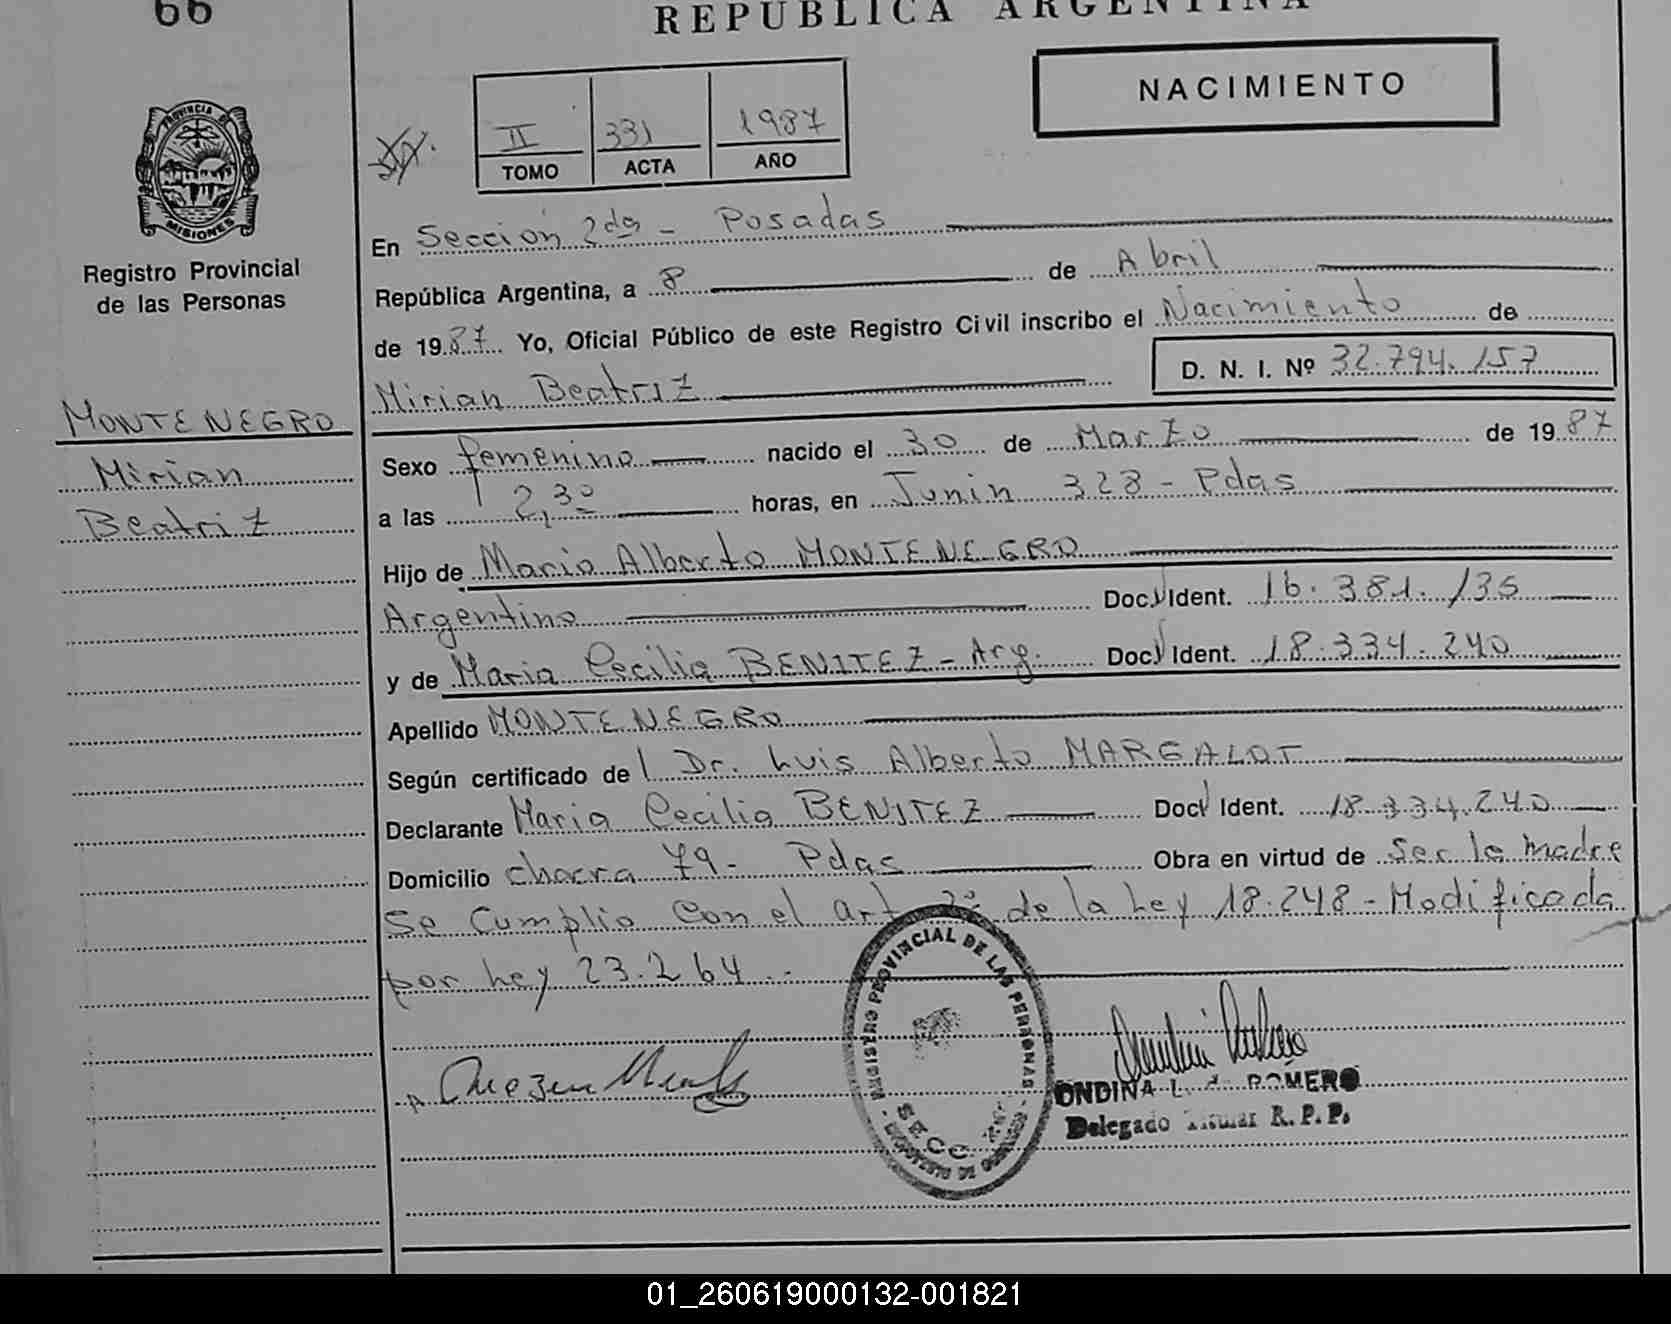 66
REPUBLICA ARGENTINA
NACIMIENTO
II 331 1987
TOMO ACTA AÑO
PROVINCIA DE MISIONES
Registro Provincial
de las Personas
MONTENEGRO
Mirian
Beatriz
En Sección 2da - Posadas
República Argentina, a 8 de Abril
de 1987 Yo, Oficial Público de este Registro Civil inscribo el Nacimiento de
Mirian Beatriz D. N. I. Nº 32.794.157
Sexo femenino nacido el 30 de Marzo de 1987
a las 2,30 horas, en Junin 328 - Pdas
Hijo de Mario Alberto MONTENEGRO
Argentino Doc. Ident. 16.381.135
y de Maria Cecilia BENITEZ - Arg. Doc. Ident. 18.334.240
Apellido MONTENEGRO
Según certificado de Dr. Luis Alberto MARGALOT
Declarante Maria Cecilia BENITEZ Doc. Ident. 18.334.240
Domicilio chacra 79 - Pdas Obra en virtud de Ser la madre
Se Cumplio con el art 2º de la Ley 18.248 - Modificada
por Ley 23.264.-
REGISTRO PROVINCIAL DE LAS PERSONAS
SECC. 2da
ONDINA L. ROMERO
Delegado Titular R. P. P.
01_260619000132-001821